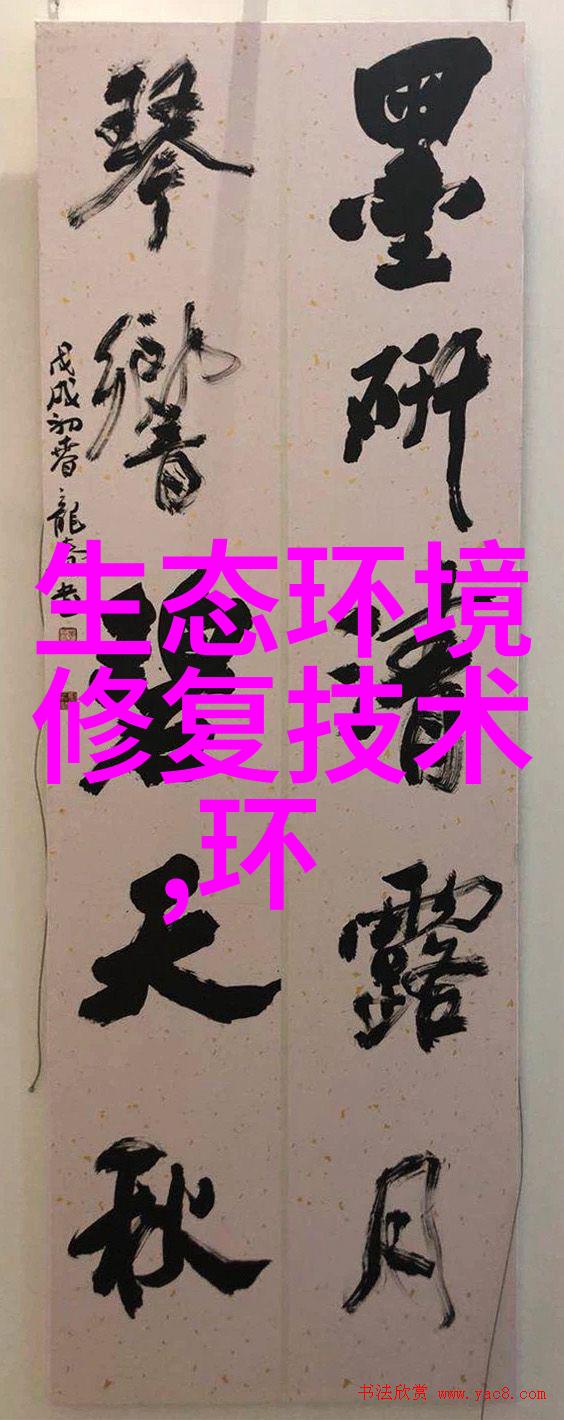 墨研清露月
琴響碧天秋
戊戌初春龍书
生态环境
修复技术
,环
书法欣赏 www.yac8.com